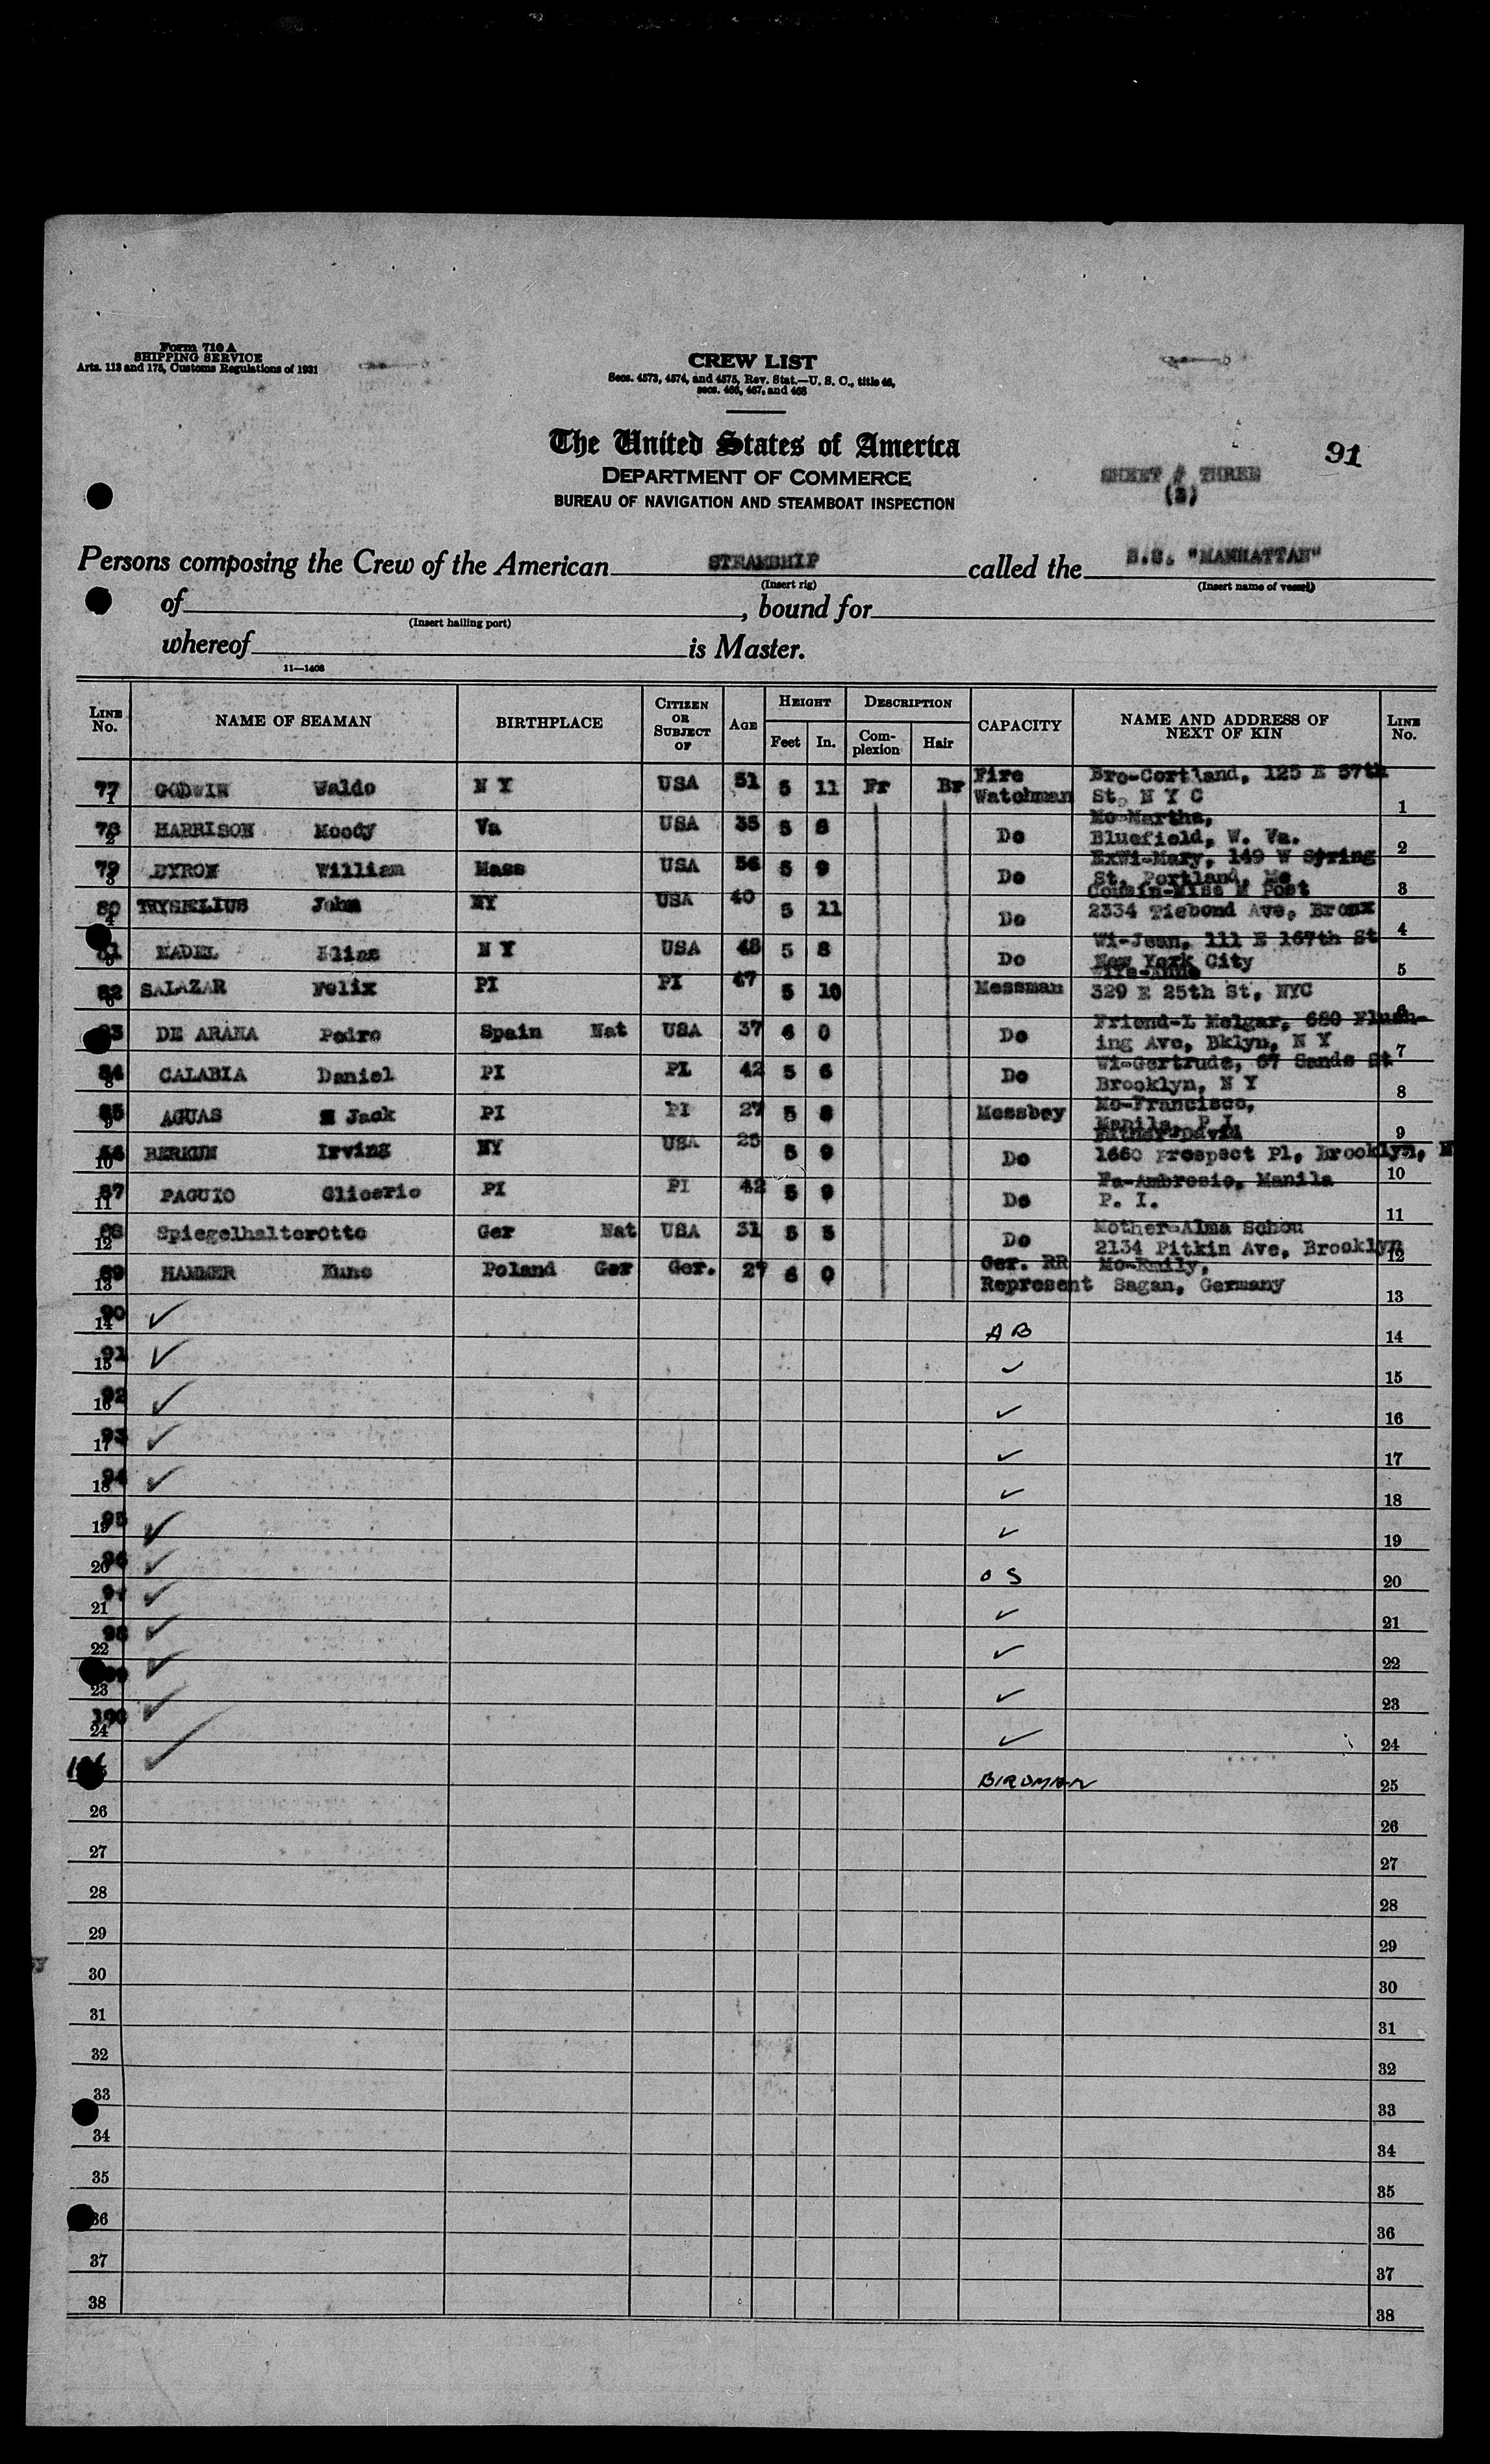 Form 710 A
SHIPPING SERVICE
Arts. 113 and 175, Customs Regulations of 1931
CREW LIST
Secs. 4573, 4574, and 4575, Rev. Stat.—U. S. C., title 46,
secs. 466, 467, and 468
The United States of America
DEPARTMENT OF COMMERCE
BUREAU OF NAVIGATION AND STEAMBOAT INSPECTION
91
SHEET # THREE
(3)
Persons composing the Crew of the American STEAMSHIP called the S.S. "MANHATTAN"
(Insert rig) (Insert name of vessel)
of , bound for
(Insert hailing port)
whereof is Master.
11—1408
LINE No. NAME OF SEAMAN BIRTHPLACE CITIZEN OR SUBJECT OF AGE HEIGHT Feet In. DESCRIPTION Complexion Hair CAPACITY NAME AND ADDRESS OF NEXT OF KIN LINE No.
77 1 GODWIN Waldo N Y USA 51 5 11 Fr Br Fire Watchman Bro-Cortland, 125 E 57th St. N Y C 1
78 2 HARRISON Moody Va USA 35 5 8 Do Mo-Martha, Bluefield, W. Va. 2
79 3 BYRON William Mass USA 56 5 9 Do ExWi-Mary, 149 W Spring St. Portland, Me 3
80 4 THYSELIUS John NY USA 40 5 11 Do Cousin-Miss M Post 2334 Tiebond Ave, Bronx 4
81 5 NADEL Elias N Y USA 48 5 8 Do Wi-Jean, 111 E 167th St New York City 5
82 6 SALAZAR Felix PI PI 47 5 10 Messman Wife-Anne 329 E 25th St, NYC 6
83 DE ARANA Pedro Spain Nat USA 37 6 0 Do Friend-L Melgar, 680 Flushing Ave, Bklyn, N Y 7
84 8 CALABIA Daniel PI PI 42 5 6 Do Wi-Gertrude, 67 Sands St Brooklyn, N Y 8
85 9 AGUAS M Jack PI PI 27 5 8 Messboy Mo-Francisco, Manila, P I 9
86 10 BERKUN Irving NY USA 25 5 9 Do Father-David 1660 Prospect Pl, Brooklyn, N 10
87 11 PAGUIO Glicerio PI PI 42 5 9 Do Fa-Ambrosio, Manila P. I. 11
88 12 Spiegelhalter Otto Ger Nat USA 31 5 5 Do Mother-Alma Schou 2134 Pitkin Ave, Brooklyn 12
89 13 HAMMER Kuno Poland Ger Ger. 27 6 0 Ger. RR Represent Mo-Emily, Sagan, Germany 13
90 14 ✓ A B 14
91 15 ✓ ✓ 15
92 16 ✓ ✓ 16
93 17 ✓ ✓ 17
94 18 ✓ ✓ 18
95 19 ✓ ✓ 19
96 20 ✓ O S 20
97 21 ✓ ✓ 21
98 22 ✓ ✓ 22
99 23 ✓ ✓ 23
100 24 ✓ ✓ 24
✓ BIRDMAN 25
26 26
27 27
28 28
29 29
30 30
31 31
32 32
33 33
34 34
35 35
36 36
37 37
38 38